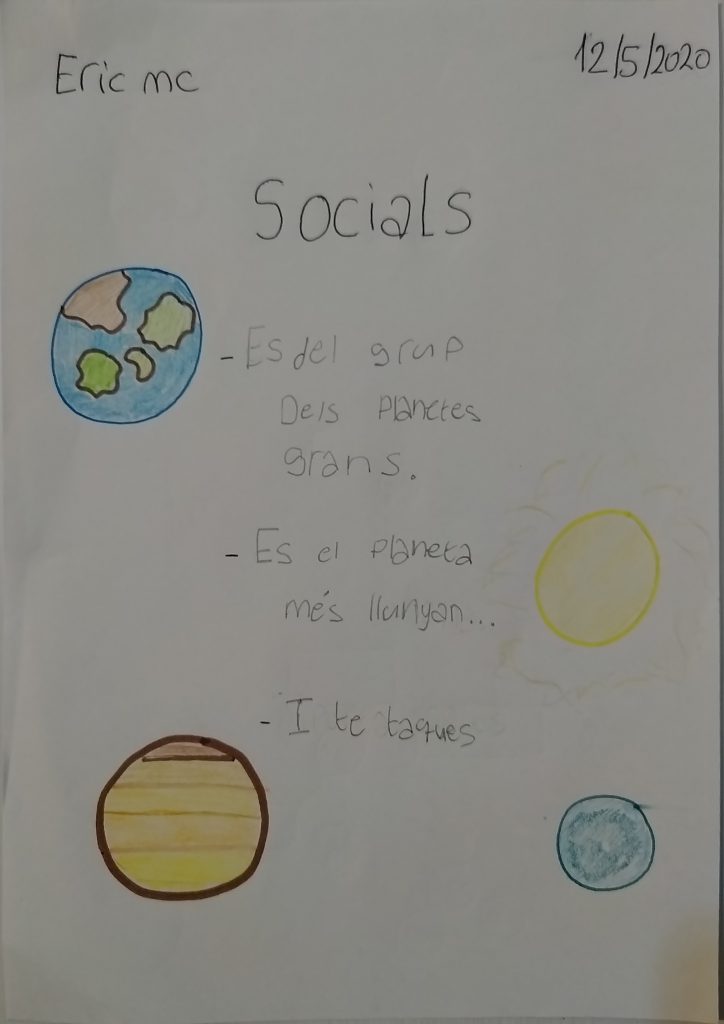 Eric mc
12/5/2020
Socials
- Es del grup
Dels Planetes
grans.
- Es el Planeta
més llunyan...
- I te taques